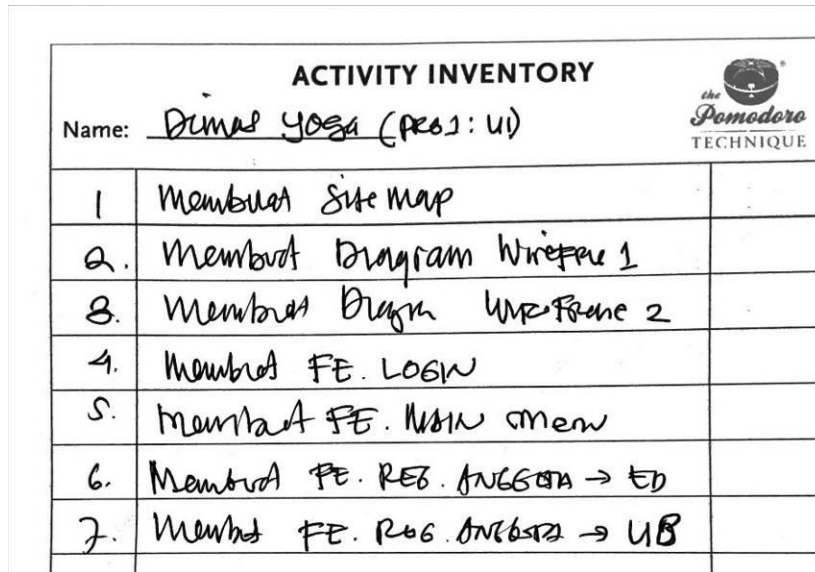 ACTIVITY INVENTORY
the Pomodoro TECHNIQUE
Name: Dimas Yoga (PROJ: UI)
1 Membuat Site Map
2. Membuat Diagram Wireframe 1
3. Membuat Diagram Wireframe 2
4. Membuat FE. LOGIN
5. Membuat FE. MAIN Menu
6. Membuat FE. REG. ANGGOTA → ED
7. Membuat FE. REG. ANGGOTA → UB